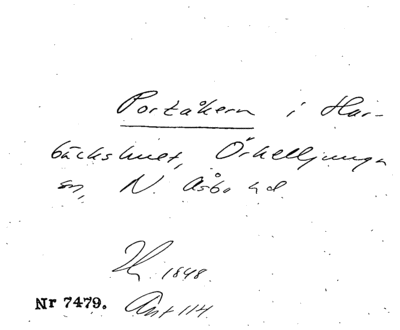 Portåkern i Har-
bäckshult, Örkelljunga
sn, N. Åsbo hd.
1848.
Nr 7479. Ant 114